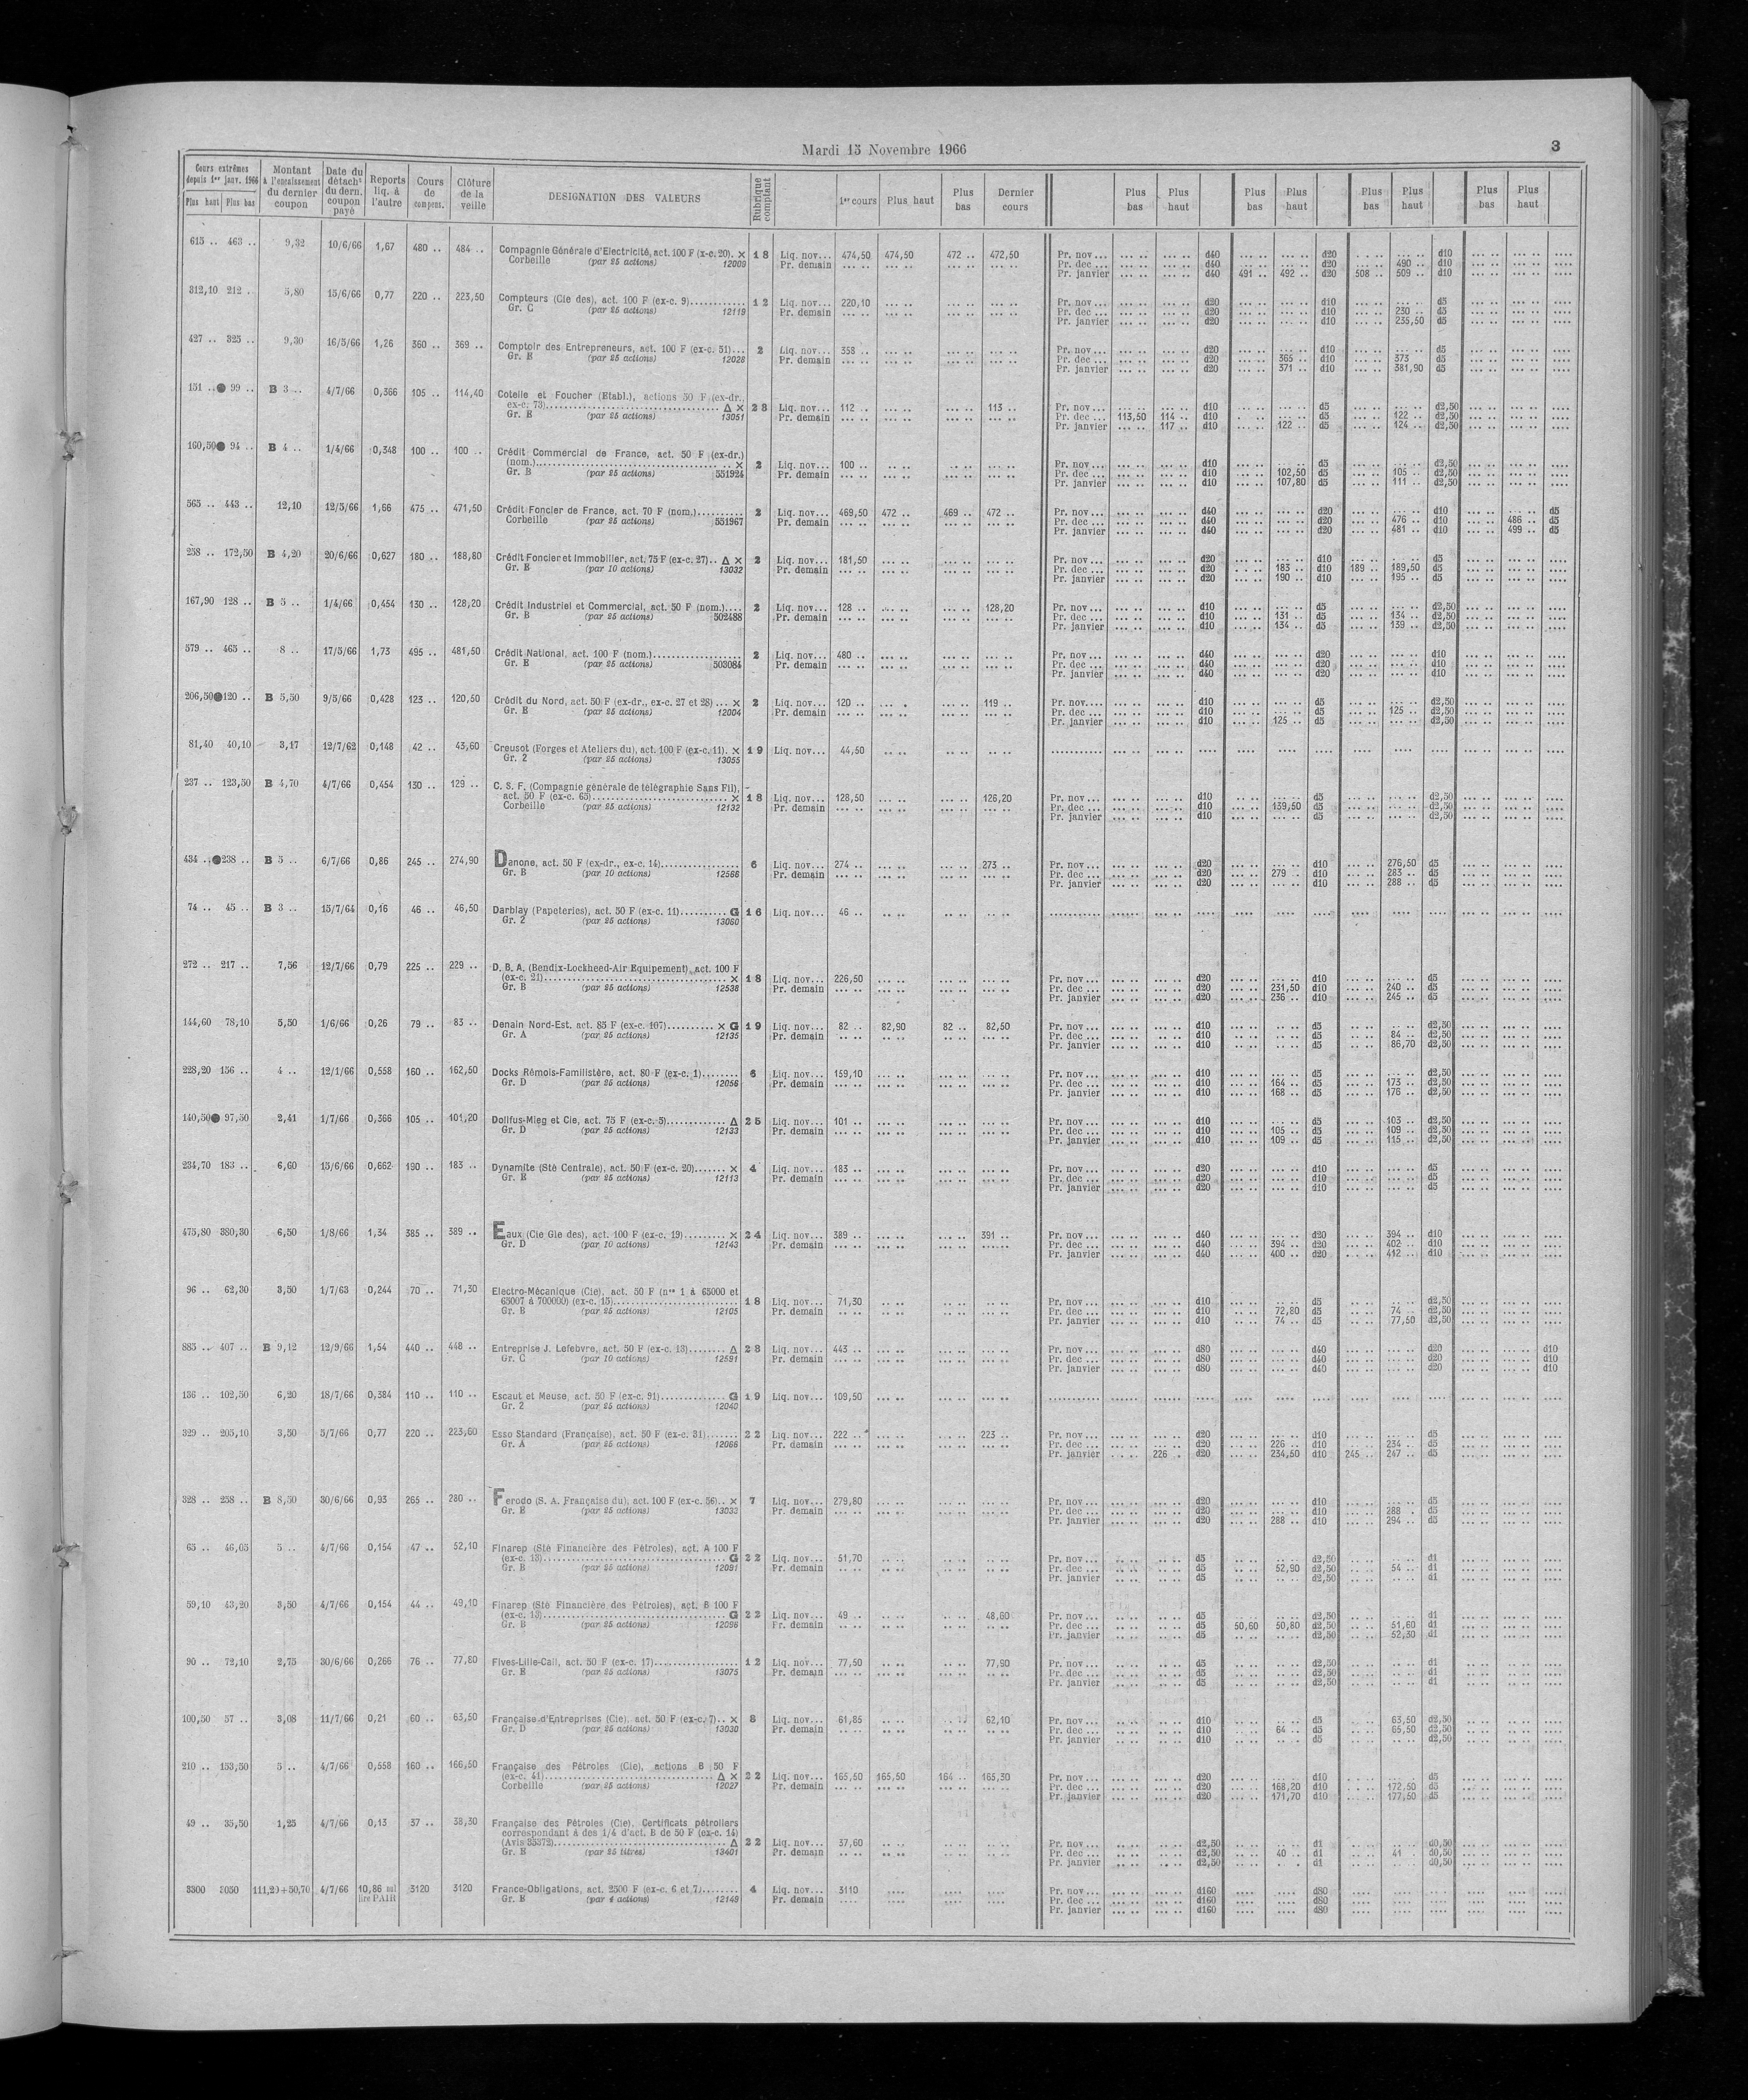 Mardi 15 Novembre 1966
3
Cours extrêmes depuis 1er janv. 1966 Plus haut Plus bas | Montant à l'encaissement du dernier coupon | Date du détacht du dern. coupon payé | Reports liq. à l'autre | Cours de compens. | Clôture de la veille | DESIGNATION DES VALEURS | Rubrique comptant | 1er cours | Plus haut | Plus bas | Dernier cours | Plus bas | Plus haut | Plus bas | Plus haut | Plus bas | Plus haut | Plus bas | Plus haut
615 .. 463 .. 9,32 10/6/66 1,67 480 .. 484 .. Compagnie Générale d'Electricité, act. 100 F (x-c. 20). × 18 Liq. nov... 474,50 474,50 472 .. 472,50 Pr. nov... d40 d20 d10
Corbeille (par 25 actions) 12009 Pr. demain Pr. dec ... d40 d20 490 .. d10
Pr. janvier d40 491 .. 492 .. d20 508 .. 509 .. d10
312,10 212 . 5,80 15/6/66 0,77 220 .. 223,50 Compteurs (Cie des), act. 100 F (ex-c. 9) 12 Liq. nov... 220,10 Pr. nov... d20 d10 d5
Gr. C (par 25 actions) 12119 Pr. demain Pr. dec ... d20 d10 230 .. d5
Pr. janvier d20 d10 235,50 d5
427 .. 325 .. 9,30 16/5/66 1,26 360 .. 369 .. Comptoir des Entrepreneurs, act. 100 F (ex-c. 51)... 2 Liq. nov... 358 .. Pr. nov... d20 d10 d5
Gr. B (par 25 actions) 12028 Pr. demain Pr. dec ... d20 365 .. d10 373 d5
Pr. janvier d20 371 .. d10 381,90 d5
151 ..● 99 .. B 3 .. 4/7/66 0,366 105 .. 114,40 Cotelle et Foucher (Etabl.), actions 50 F (ex-dr.,
ex-c. 73) Δ × 28 Liq. nov... 112 .. 113 .. Pr. nov... d10 d5 d2,50
Gr. B (par 25 actions) 13051 Pr. demain Pr. dec ... 113,50 114 .. d10 d5 122 .. d2,50
Pr. janvier 117 .. d10 122 .. d5 124 .. d2,50
160,50● 94 .. B 4 .. 1/4/66 0,348 100 .. 100 .. Crédit Commercial de France, act. 50 F (ex-dr.)
(nom.) × 2 Liq. nov... 100 .. Pr. nov... d10 d5 d2,50
Gr. B (par 25 actions) 551924 Pr. demain Pr. dec ... d10 102,50 d5 105 .. d2,50
Pr. janvier d10 107,80 d5 111 .. d2,50
565 .. 443 .. 12,10 12/5/66 1,66 475 .. 471,50 Crédit Foncier de France, act. 70 F (nom.) 2 Liq. nov... 469,50 472 .. 469 .. 472 .. Pr. nov... d40 d20 d10 d5
Corbeille (par 25 actions) 551967 Pr. demain Pr. dec ... d40 d20 476 .. d10 486 .. d5
Pr. janvier d40 d20 481 .. d10 499 .. d5
258 .. 172,50 B 4,20 20/6/66 0,627 180 .. 188,80 Crédit Foncier et Immobilier, act. 75 F (ex-c. 27).. Δ × 2 Liq. nov... 181,50 Pr. nov... d20 d10 d5
Gr. B (par 10 actions) 13032 Pr. demain Pr. dec ... d20 183 .. d10 189 .. 189,50 d5
Pr. janvier d20 190 .. d10 195 .. d5
167,90 128 .. B 5 .. 1/4/66 0,454 130 .. 128,20 Crédit Industriel et Commercial, act. 50 F (nom.).... 2 Liq. nov... 128 .. 128,20 Pr. nov... d10 d5 d2,50
Gr. B (par 25 actions) 502488 Pr. demain Pr. dec ... d10 131 .. d5 134 .. d2,50
Pr. janvier d10 134 .. d5 139 .. d2,50
579 .. 465 .. 8 .. 17/5/66 1,73 495 .. 481,50 Crédit National, act. 100 F (nom.) 2 Liq. nov... 480 .. Pr. nov... d40 d20 d10
Gr. E (par 25 actions) 503084 Pr. demain Pr. dec ... d40 d20 d10
Pr. janvier d40 d20 d10
206,50●120 .. B 5,50 9/5/66 0,428 123 .. 120,50 Crédit du Nord, act. 50 F (ex-dr., ex-c. 27 et 28) ... × 2 Liq. nov... 120 .. 119 .. Pr. nov.... d10 d5 d2,50
Gr. E (par 25 actions) 12004 Pr. demain Pr. dec ... d10 d5 125 .. d2,50
Pr. janvier d10 125 .. d5 d2,50
81,40 40,10 3,17 12/7/62 0,148 42 .. 43,60 Creusot (Forges et Ateliers du), act. 100 F (ex-c. 11). × 19 Liq. nov... 44,50
Gr. 2 (par 25 actions) 13055
237 .. 123,50 B 4,70 4/7/66 0,454 130 .. 129 .. C. S. F. (Compagnie générale de télégraphie Sans Fil),
act. 50 F (ex-c. 65) × 18 Liq. nov... 128,50 126,20 Pr. nov... d10 d5 d2,50
Corbeille (par 25 actions) 12132 Pr. demain Pr. dec ... d10 139,50 d5 d2,50
Pr. janvier d10 d5 d2,50
434 ..●238 .. B 5 .. 6/7/66 0,86 245 .. 274,90 Danone, act. 50 F (ex-dr., ex-c. 14) 6 Liq. nov... 274 .. 273 .. Pr. nov... d20 d10 276,50 d5
Gr. B (par 10 actions) 12566 Pr. demain Pr. dec ... d20 279 .. d10 283 .. d5
Pr. janvier d20 d10 288 .. d5
74 .. 45 .. B 3 .. 15/7/64 0,16 46 .. 46,50 Darblay (Papeteries), act. 50 F (ex-c. 11) G 16 Liq. nov... 46 ..
Gr. 2 (par 25 actions) 13060
272 .. 217 .. 7,56 12/7/66 0,79 225 .. 229 .. D. B. A. (Bendix-Lockheed-Air Equipement), act. 100 F
(ex-c. 21) × 18 Liq. nov... 226,50 Pr. nov... d20 d10 d5
Gr. B (par 25 actions) 12538 Pr. demain Pr. dec ... d20 231,50 d10 240 .. d5
Pr. janvier d20 236 .. d10 245 .. d5
144,60 78,10 5,50 1/6/66 0,26 79 .. 83 .. Denain Nord-Est, act. 85 F (ex-c. 107) × G 19 Liq. nov... 82 .. 82,90 82 .. 82,50 Pr. nov... d10 d5 d2,50
Gr. A (par 25 actions) 12135 Pr. demain Pr. dec ... d10 d5 84 .. d2,50
Pr. janvier d10 d5 86,70 d2,50
228,20 156 .. 4 .. 12/1/66 0,558 160 .. 162,50 Docks Rémois-Familistère, act. 80 F (ex-c. 1) 6 Liq. nov... 159,10 Pr. nov... d10 d5 d2,50
Gr. D (par 25 actions) 12056 Pr. demain Pr. dec ... d10 164 .. d5 173 .. d2,50
Pr. janvier d10 168 .. d5 176 .. d2,50
140,50● 97,50 2,41 1/7/66 0,366 105 .. 101,20 Dollfus-Mieg et Cie, act. 75 F (ex-c. 5) Δ 25 Liq. nov... 101 .. Pr. nov... d10 d5 103 .. d2,50
Gr. D (par 25 actions) 12133 Pr. demain Pr. dec ... d10 105 .. d5 109 .. d2,50
Pr. janvier d10 109 .. d5 115 .. d2,50
234,70 183 .. 6,60 15/6/66 0,662 190 .. 183 .. Dynamite (Sté Centrale), act. 50 F (ex-c. 20) × 4 Liq. nov... 183 .. Pr. nov... d20 d10 d5
Gr. E (par 25 actions) 12113 Pr. demain Pr. dec ... d20 d10 d5
Pr. janvier d20 d10 d5
475,80 380,30 6,50 1/8/66 1,34 385 .. 389 .. Eaux (Cie Gle des), act. 100 F (ex-c. 19) × 24 Liq. nov... 389 .. 391 .. Pr. nov... d40 d20 394 .. d10
Gr. D (par 10 actions) 12143 Pr. demain Pr. dec ... d40 394 .. d20 402 .. d10
Pr. janvier d40 400 .. d20 412 .. d10
96 .. 62,30 3,50 1/7/63 0,244 70 .. 71,30 Electro-Mécanique (Cie), act. 50 F (nos 1 à 65000 et
65007 à 700000) (ex-c. 15) 18 Liq. nov... 71,30 Pr. nov... d10 d5 d2,50
Gr. B (par 25 actions) 12105 Pr. demain Pr. dec ... d10 72,80 d5 74 .. d2,50
Pr. janvier d10 74 .. d5 77,50 d2,50
885 .. 407 .. B 9,12 12/9/66 1,54 440 .. 448 .. Entreprise J. Lefebvre, act. 50 F (ex-c. 13) Δ 28 Liq. nov... 443 .. Pr. nov... d80 d40 d20 d10
Gr. C (par 10 actions) 12591 Pr. demain Pr. dec ... d80 d40 d20 d10
Pr. janvier d80 d40 d20 d10
136 .. 102,50 6,20 18/7/66 0,384 110 .. 110 .. Escaut et Meuse, act. 50 F (ex-c. 91) G 19 Liq. nov... 109,50
Gr. 2 (par 25 actions) 12040
329 .. 205,10 3,50 5/7/66 0,77 220 .. 223,60 Esso Standard (Française), act. 50 F (ex-c. 31) 22 Liq. nov... 222 .. 223 .. Pr. nov... d20 d10 d5
Gr. A (par 25 actions) 12066 Pr. demain Pr. dec ... d20 226 .. d10 234 .. d5
Pr. janvier 226 .. d20 234,50 d10 245 .. 247 .. d5
328 .. 258 .. B 8,50 30/6/66 0,93 265 .. 280 .. Ferodo (S. A. Française du), act. 100 F (ex-c. 56).. × 7 Liq. nov... 279,80 Pr. nov... d20 d10 d5
Gr. E (par 25 actions) 13033 Pr. demain Pr. dec ... d20 d10 288 .. d5
Pr. janvier d20 288 .. d10 294 .. d5
65 .. 46,05 5 .. 4/7/66 0,154 47 .. 52,10 Finarep (Sté Financière des Pétroles), act. A 100 F
(ex-c. 13) G 22 Liq. nov... 51,70 Pr. nov... d5 d2,50 d1
Gr. B (par 25 actions) 12091 Pr. demain Pr. dec ... d5 52,90 d2,50 54 .. d1
Pr. janvier d5 d2,50 d1
59,10 43,20 3,50 4/7/66 0,154 44 .. 49,10 Finarep (Sté Financière des Pétroles), act. B 100 F
(ex-c. 13) G 22 Liq. nov... 49 .. 48,60 Pr. nov... d5 d2,50 d1
Gr. B (par 25 actions) 12096 Pr. demain Pr. dec ... d5 50,60 50,80 d2,50 51,60 d1
Pr. janvier d5 d2,50 52,30 d1
90 .. 72,10 2,75 30/6/66 0,266 76 .. 77,80 Fives-Lille-Cail, act. 50 F (ex-c. 17) 12 Liq. nov... 77,50 77,90 Pr. nov... d5 d2,50 d1
Gr. E (par 25 actions) 13075 Pr. demain Pr. dec ... d5 d2,50 d1
Pr. janvier d5 d2,50 d1
100,50 57 .. 3,08 11/7/66 0,21 60 .. 63,50 Française d'Entreprises (Cie), act. 50 F (ex-c. 7).. × 8 Liq. nov... 61,85 62,10 Pr. nov... d10 d5 63,50 d2,50
Gr. D (par 25 actions) 13030 Pr. demain Pr. dec ... d10 64 .. d5 65,50 d2,50
Pr. janvier d10 d5 d2,50
210 .. 153,50 5 .. 4/7/66 0,558 160 .. 166,50 Française des Pétroles (Cie), actions B 50 F
(ex-c. 41) Δ × 22 Liq. nov... 165,50 165,50 164 .. 165,30 Pr. nov... d20 d10 d5
Corbeille (par 25 actions) 12027 Pr. demain Pr. dec ... d20 168,20 d10 172,50 d5
Pr. janvier d20 171,70 d10 177,50 d5
49 .. 35,50 1,25 4/7/66 0,13 37 .. 38,30 Française des Pétroles (Cie). Certificats pétroliers
correspondant à des 1/4 d'act. B de 50 F (ex-c. 14)
(Avis 35372) Δ 22 Liq. nov... 37,60 Pr. nov... d2,50 d1 d0,50
Gr. E (par 25 titres) 13401 Pr. demain Pr. dec ... d2,50 40 .. d1 41 .. d0,50
Pr. janvier d2,50 d1 d0,50
3300 3050 111,20+50,70 4/7/66 10,86 3120 3120 France-Obligations, act. 2500 F (ex-c. 6 et 7) 4 Liq. nov... 3110 Pr. nov... d160 d80
PAIR Gr. E (par 4 actions) 12149 Pr. demain Pr. dec ... d160 d80
Pr. janvier d160 d80